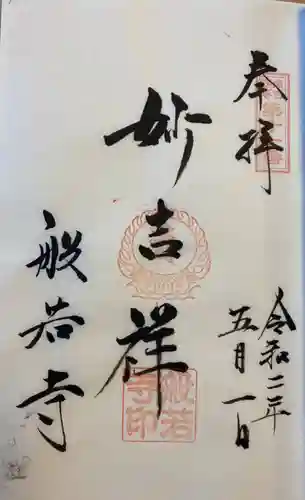 奉拝
令和二年
五月一日
妙吉祥
般若寺
般若
寺印